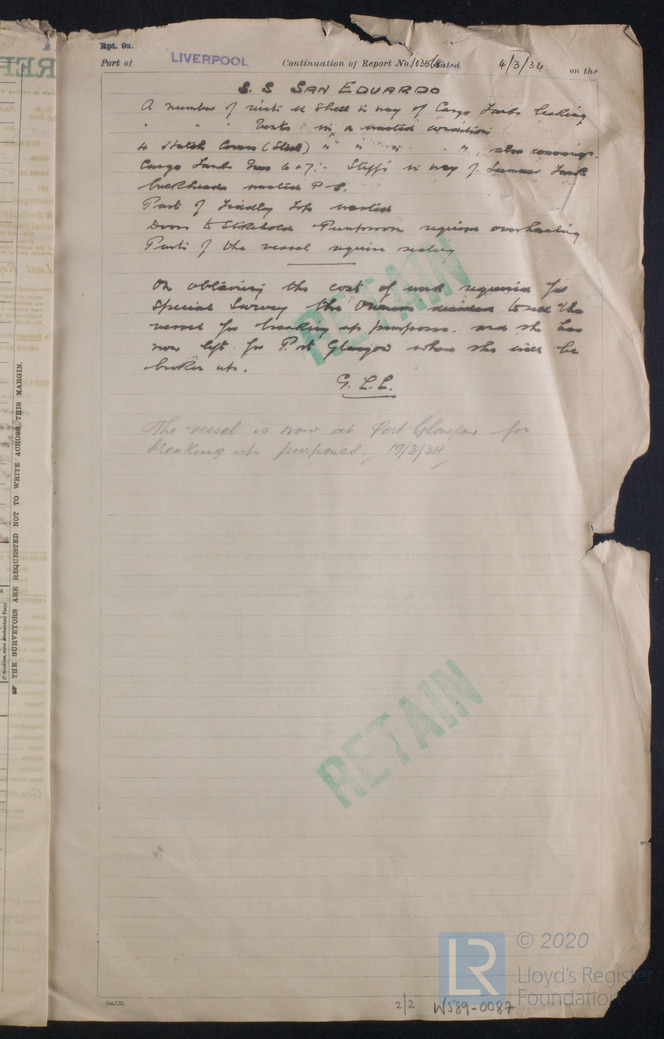 Rpt. 9a.
Port of LIVERPOOL Continuation of Report No. dated 6/3/34 on the
S.S SAN EDUARDO
A number of rivets in Shell in way of Cargo Tanks leaking
" " Vents " in a wasted condition
4 Hatch Covers (Steel) " " " " also coamings.
Cargo Tanks Nos 6 & 7:- Stiff's in way of Summer Tank
bulkheads wasted P S.
Part of Fiddley Top wasted
Doors to Stokehold & Pumproom require overhauling
Parts of the vessel require scaling
On obtaining the cost of work required for
Special Survey the Owners decided to sell the
vessel for breaking up purposes. and she has
now left for Port Glasgow where she will be
broken up.
G. L.L.
The vessel is now at Port Glasgow for
breaking up purposes. 19/3/34
RETAIN
RETAIN
THE SURVEYORS ARE REQUESTED NOT TO WRITE ACROSS THIS MARGIN.
LR
© 2020
Lloyd's Register
Foundation
2/2 W589-0087